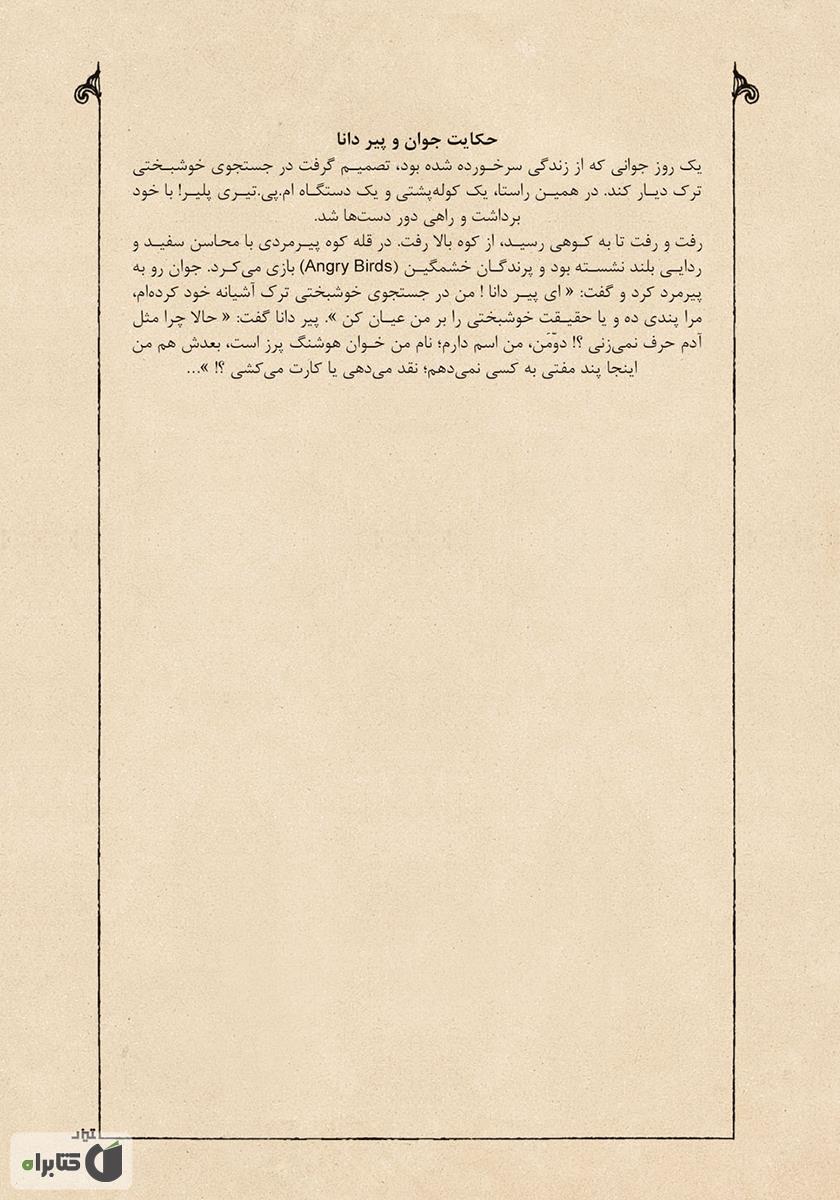 حکایت جوان و پیر دانا
یک روز جوانی که از زندگی سرخورده شده بود، تصمیم گرفت در جستجوی خوشبختی
ترک دیار کند. در همین راستا، یک کوله‌پشتی و یک دستگاه ام.پی.تیری پلیر! با خود
برداشت و راهی دور دست‌ها شد.
رفت و رفت تا به کوهی رسید، از کوه بالا رفت. در قله کوه پیرمردی با محاسن سفید و
ردایی بلند نشسته بود و پرندگان خشمگین (Angry Birds) بازی می‌کرد. جوان رو به
پیرمرد کرد و گفت: « ای پیر دانا ! من در جستجوی خوشبختی ترک آشیانه خود کرده‌ام،
مرا پندی ده و یا حقیقت خوشبختی را بر من عیان کن ». پیر دانا گفت: « حالا چرا مثل
آدم حرف نمی‌زنی ؟! دوّمَن، من اسم دارم؛ نام من خوان هوشنگ پرز است، بعدش هم من
اینجا پند مفتی به کسی نمی‌دهم؛ نقد می‌دهی یا کارت می‌کشی ؟! »...
کتابراه